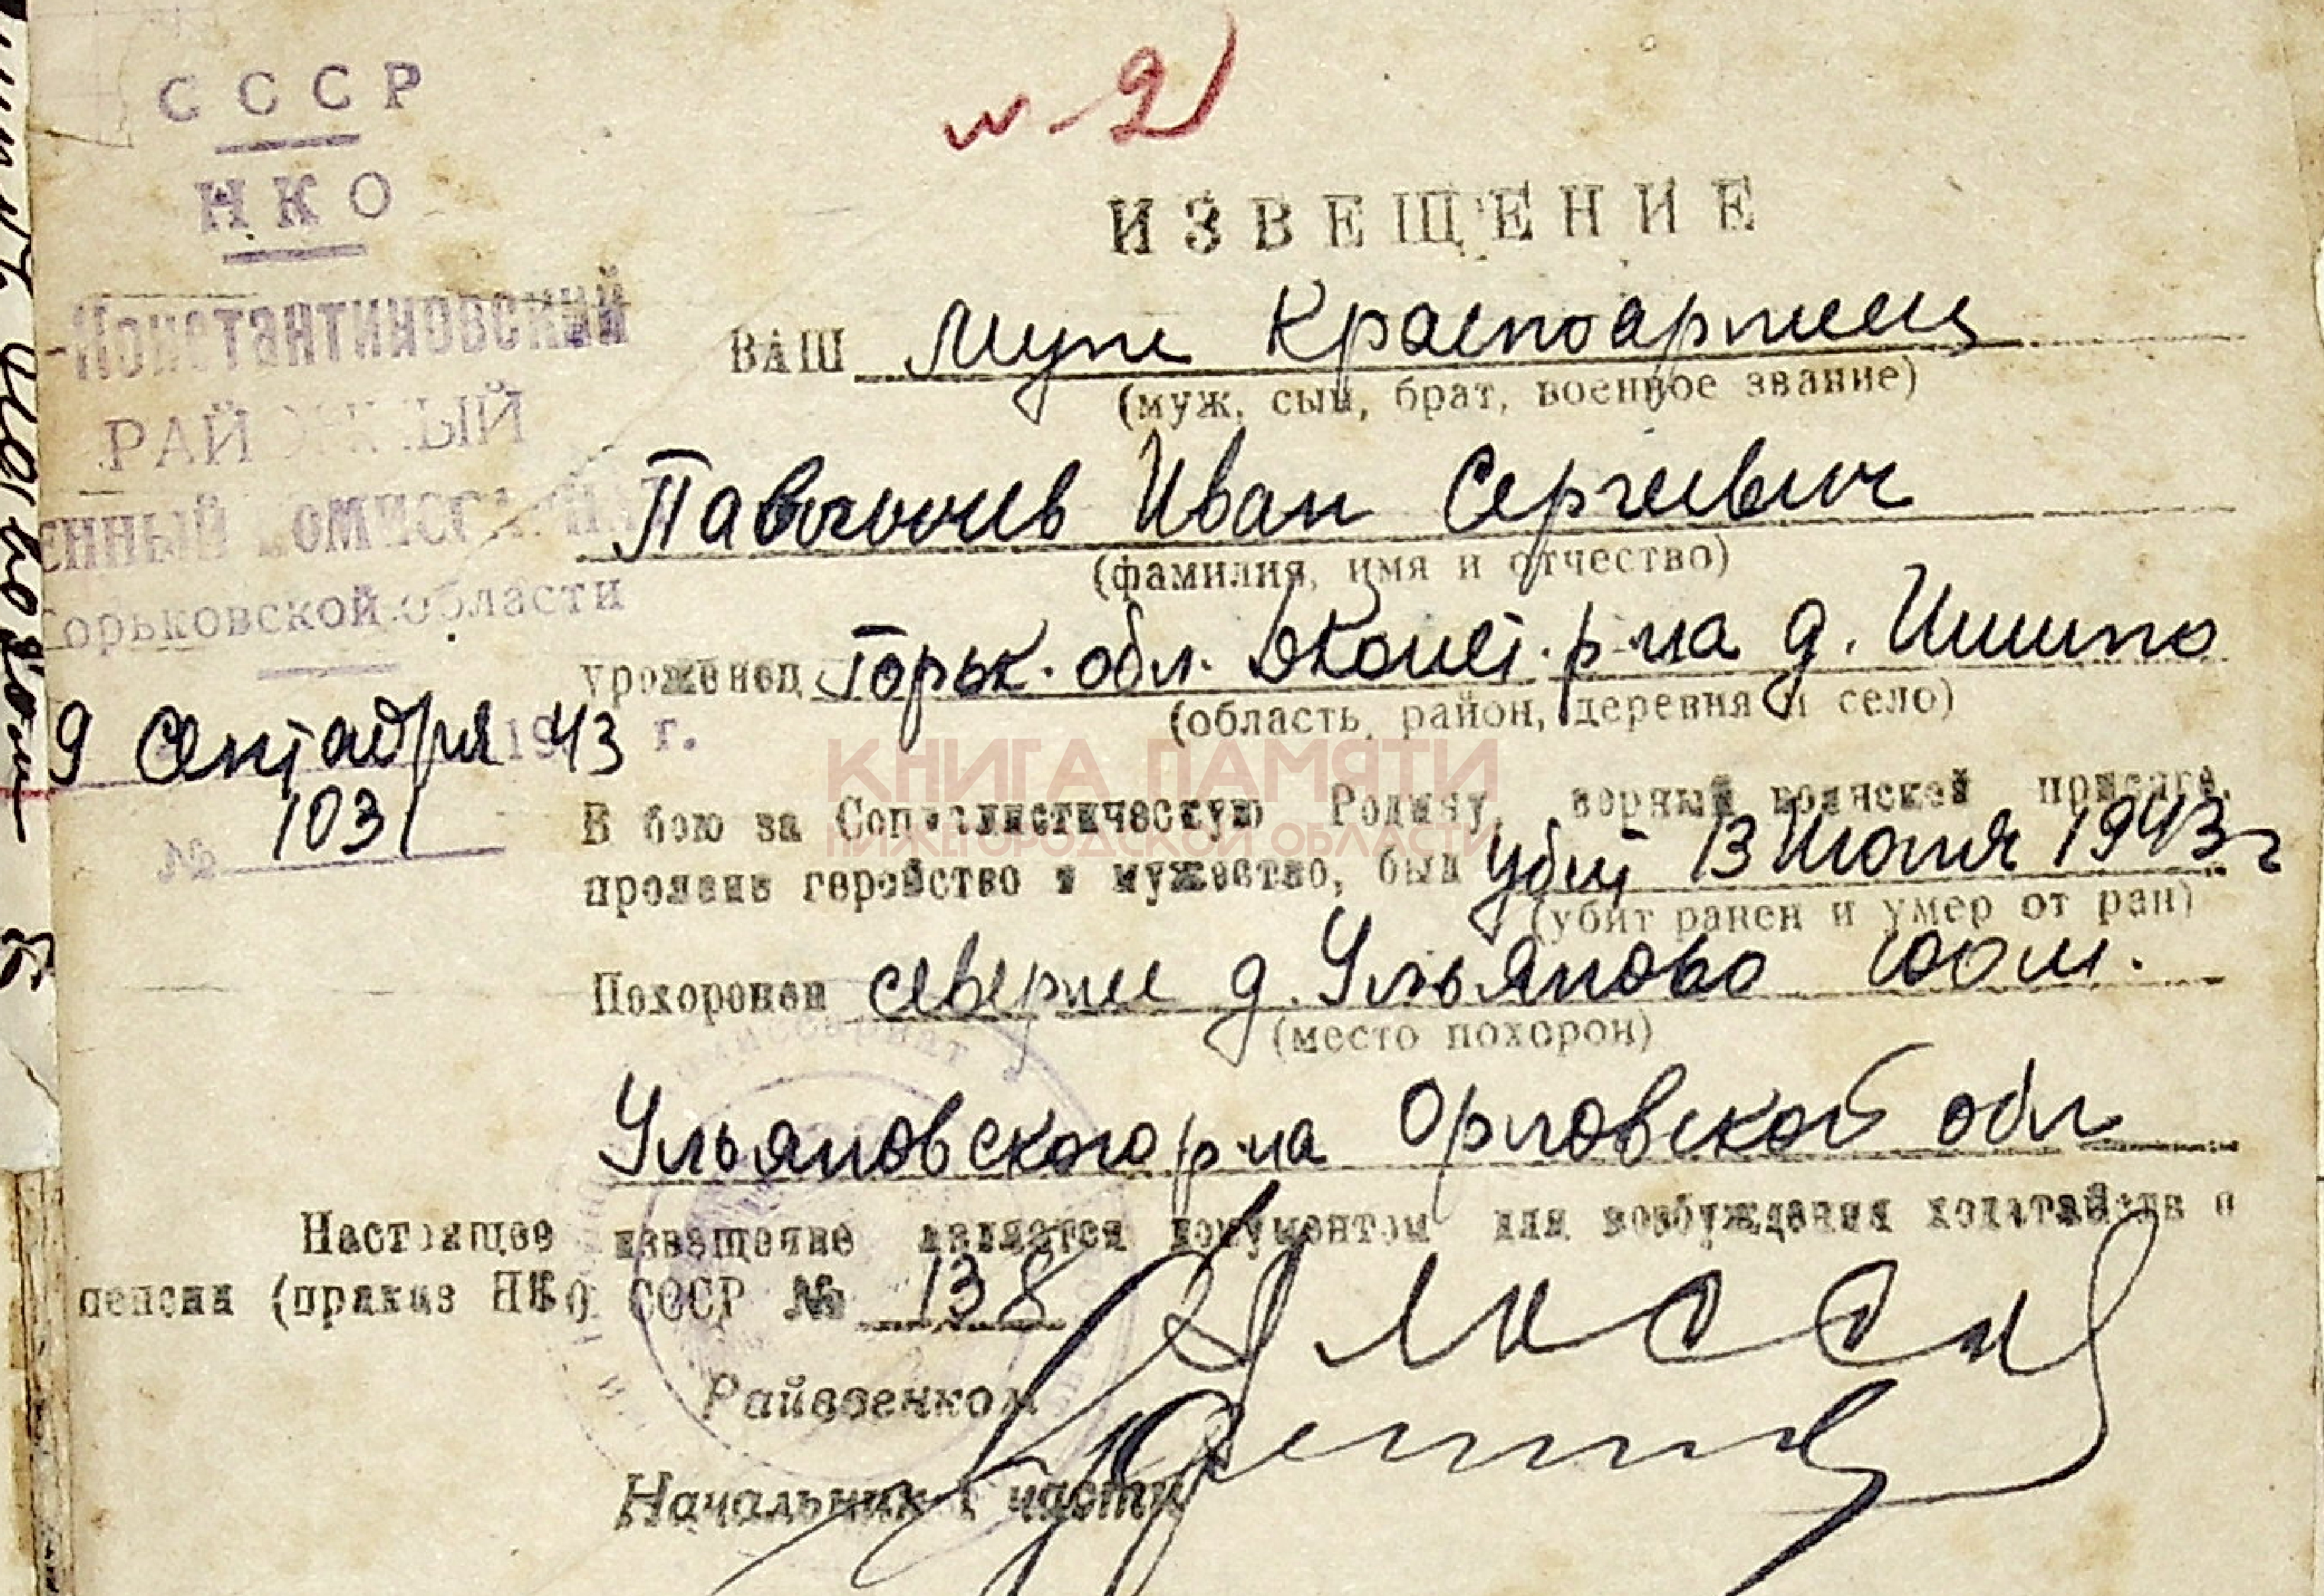 СССР
НКО
-Константиновский
РАЙОННЫЙ
енный комиссариат
Горьковской области
9 Сентября 1943 г.
№ 1031
N-2
ИЗВЕЩЕНИЕ
ВАШ муж Красноармеец
(муж, сын, брат, военное звание)
Иван Сергеевич
(фамилия, имя и отчество)
уроженец Горьк. обл. ДКонст. р-на д.
(область, район, деревня и село)
КНИГА ПАМЯТИ
НИЖЕГОРОДСКОЙ ОБЛАСТИ
В бою за Социалистическую Родину, верный воинской присяге,
проявив геройство и мужество, был убит 13 Июля 1943 г
(убит ранен и умер от ран)
Похоронен севернее д. Ульяново 100 м.
(место похорон)
Ульяновского р-на Орловской обл
Настоящее извещение является документом для возбуждения ходатайств о
пенсии (приказ НКО СССР № 138
Райвоенком
Начальник 1 части